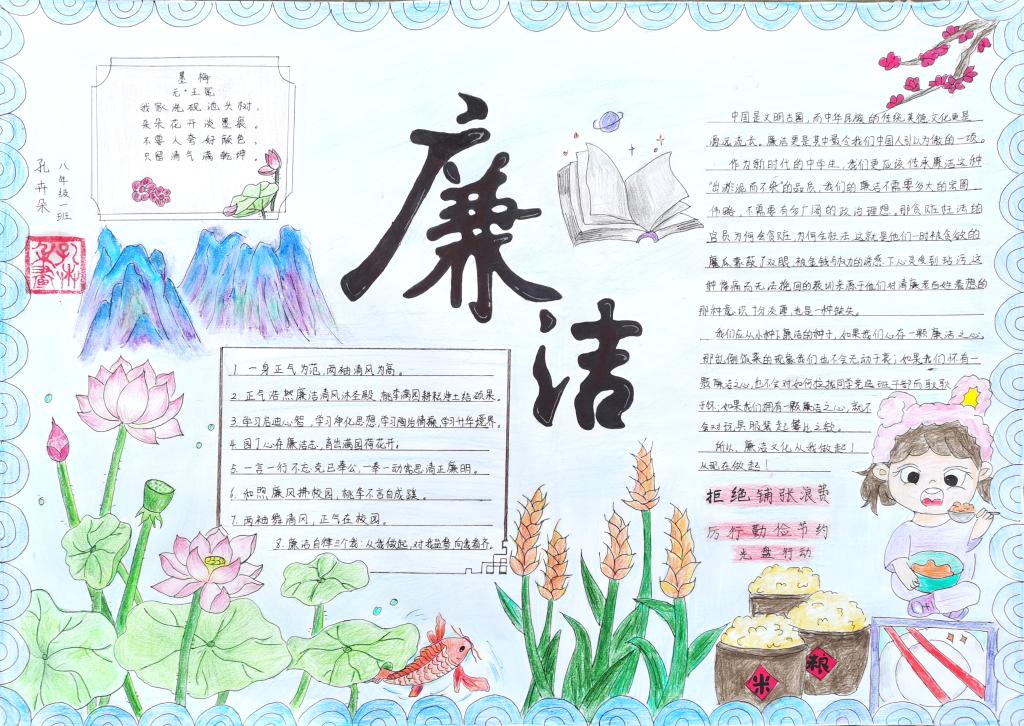 墨梅
元·王冕
我家洗砚池头树，
朵朵花开淡墨痕。
不要人夸好颜色，
只留清气满乾坤。
八年级一班
孔卉朵
廉洁
1. 一身正气为范，两袖清风为高。
2. 正气浩然廉洁清风沐圣殿 桃李满园耕耘净土结硕果。
3 学习启迪心智，学习净化思想，学习陶冶情操，学习升华境界。
4. 园丁心存廉洁志，育出满园荷花开。
5. 一言一行不忘克己奉公，一举一动常思清正廉明。
6. 和煦廉风拂校园，桃李不言自成蹊。
7. 两袖舞清风，正气在校园。
8. 廉洁自律三个我：从我做起，对我监督 向我看齐。
中国是文明古国，而中华民族的传统美德文化更是
源远流长。廉洁更是其中最令我们中国人引以为傲的一项。
作为新时代的中学生，我们更应该传承廉洁这种
"出淤泥而不染"的品质，我们的廉洁不需要多大的宏图
伟略，不需要有多广阔的政治理想。那贪赃枉法的
官员为何会贪赃，为何会枉法，这就是他们一时被贪欲的
心灵受到玷污，这
种惨痛而无法挽回的教训来源于他们对清廉者百姓着想的
那种意识十分淡薄，也是一种缺失。
我们应从小种下廉洁的种子，如果我们心存一颗廉洁之心，
那乱倒饭菜的现象我们也不会无动于衷；如果我们怀有一
颗廉洁之心，也不会对如何拉拢同学竞选班干部而耿耿
于怀；如果我们拥有一颗廉洁之心，就不
会对玩具服装起攀比之欲。
所以，廉洁文化从我做起！
从现在做起！
拒绝铺张浪费
厉行勤俭节约
光盘行动
米
粮